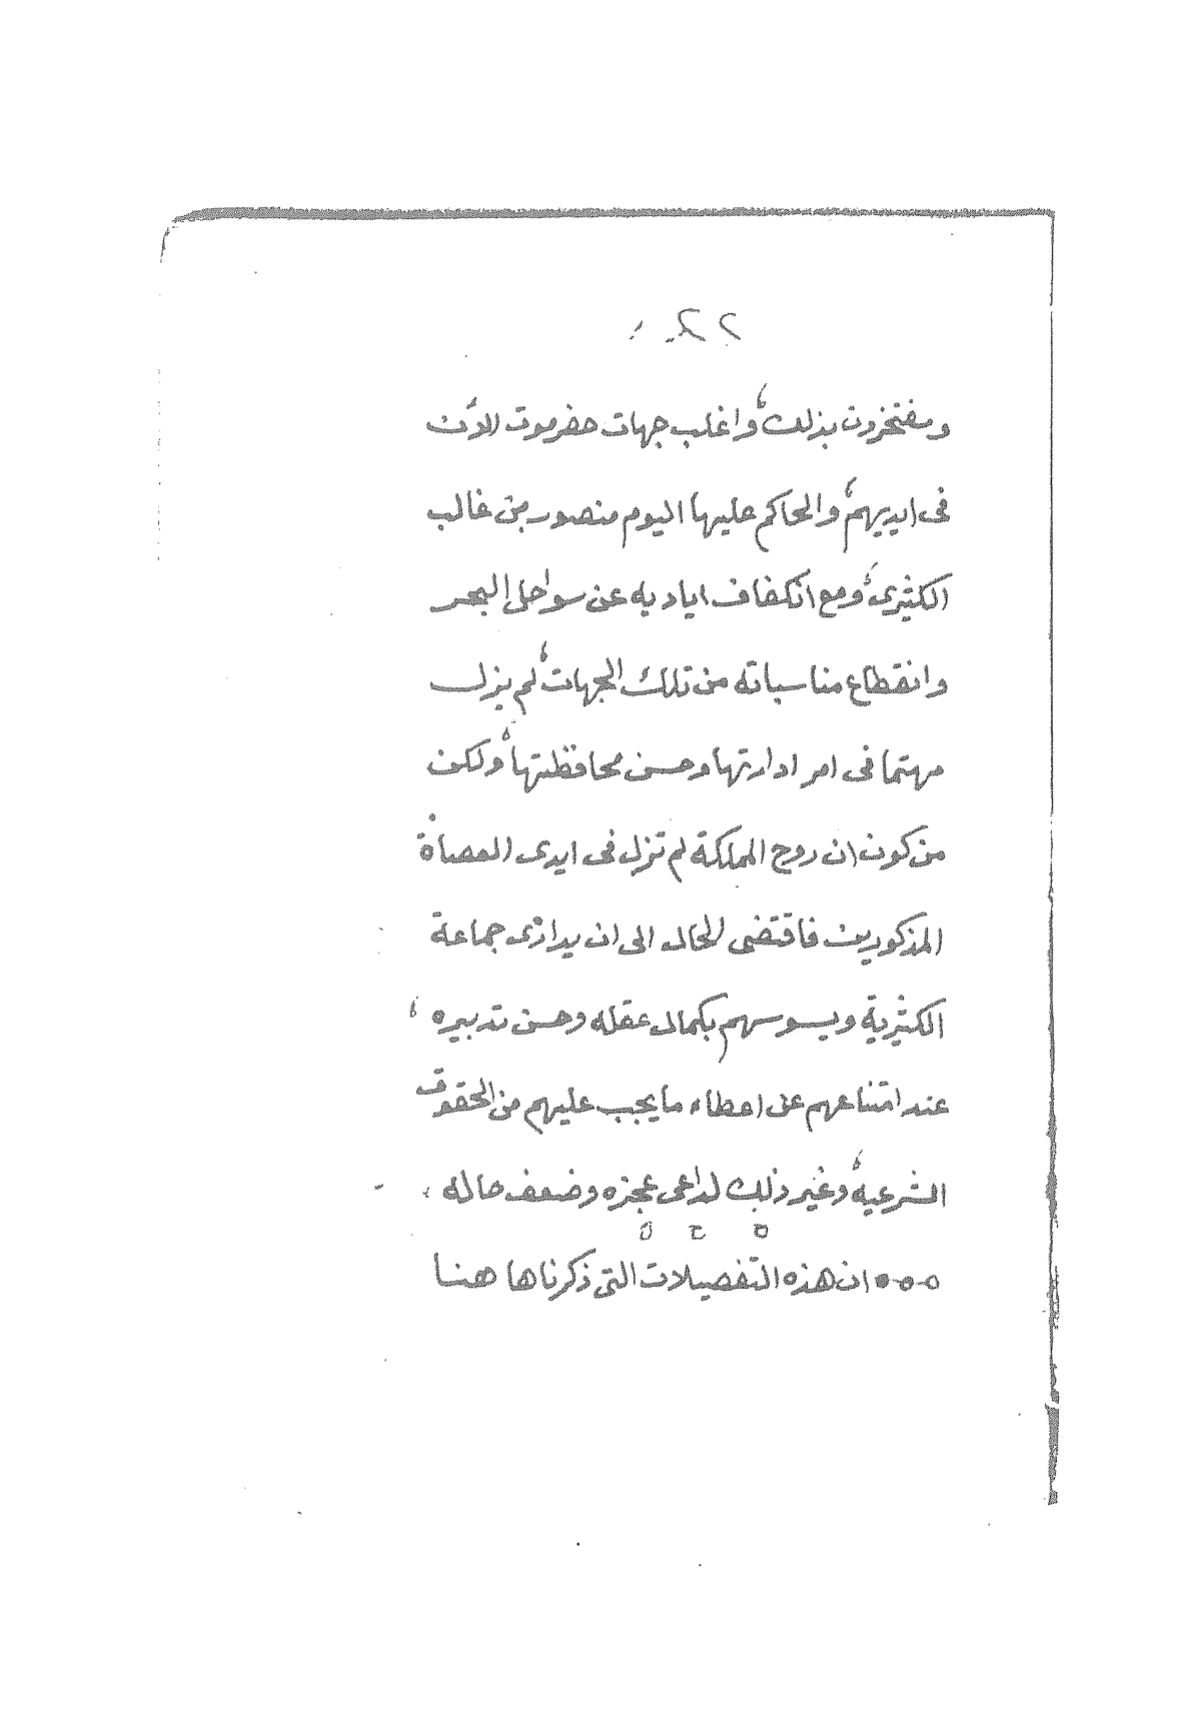 ٢٢
ومفتخرون بذلك، واغلب جهات حضرموت الأن
فى ايديهم، والحاكم عليها اليوم منصور بن غالب
الكثيرى، ومع انكفاف اياديه عن سواحل البحر
وانقطاع مناسباته من تلك الجهات، لم يزل
مهتما فى امر ادارتها وحسن محافظتها، ولكن
من كون ان روح المملكة لم تزل فى ايدى العصاة
المذكورين فاقتضى الحال الى ان يدارى جماعة
الكثيرية ويسوسهم بكمال عقله وحسن تدبيره،
عند امتناعهم عن اعطاء ما يجب عليهم من الحقوق
الشرعيه، وغير ذلك لداعى عجزه وضعف حاله
ان هذه التفصيلات التى ذكرناها هنا